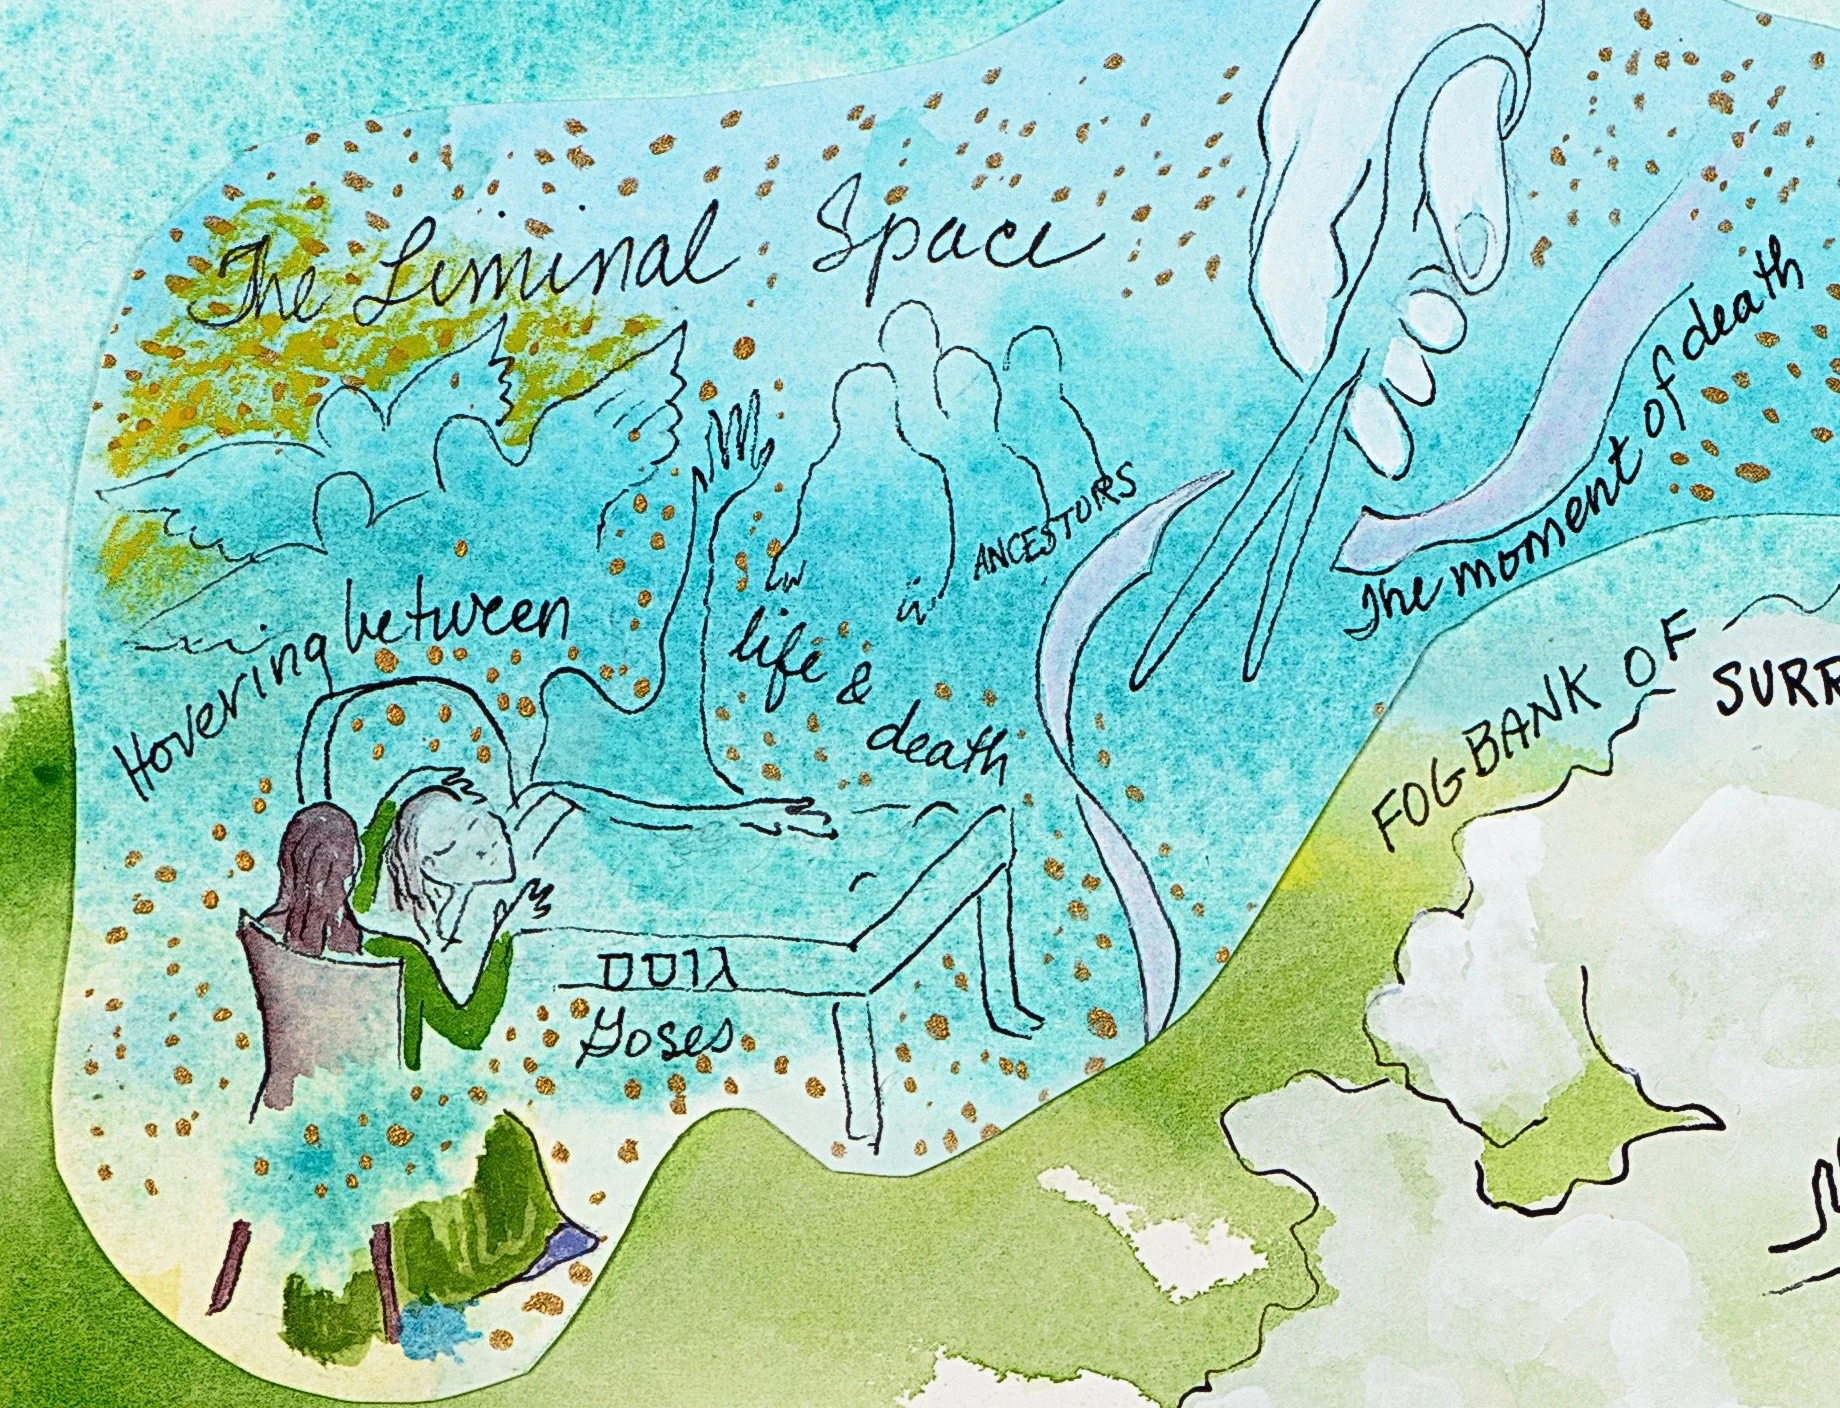 The Liminal Space
ANCESTORS
Hovering between
life &
death
The moment of death
FOGBANK OF
SURR
גוסס
Goses